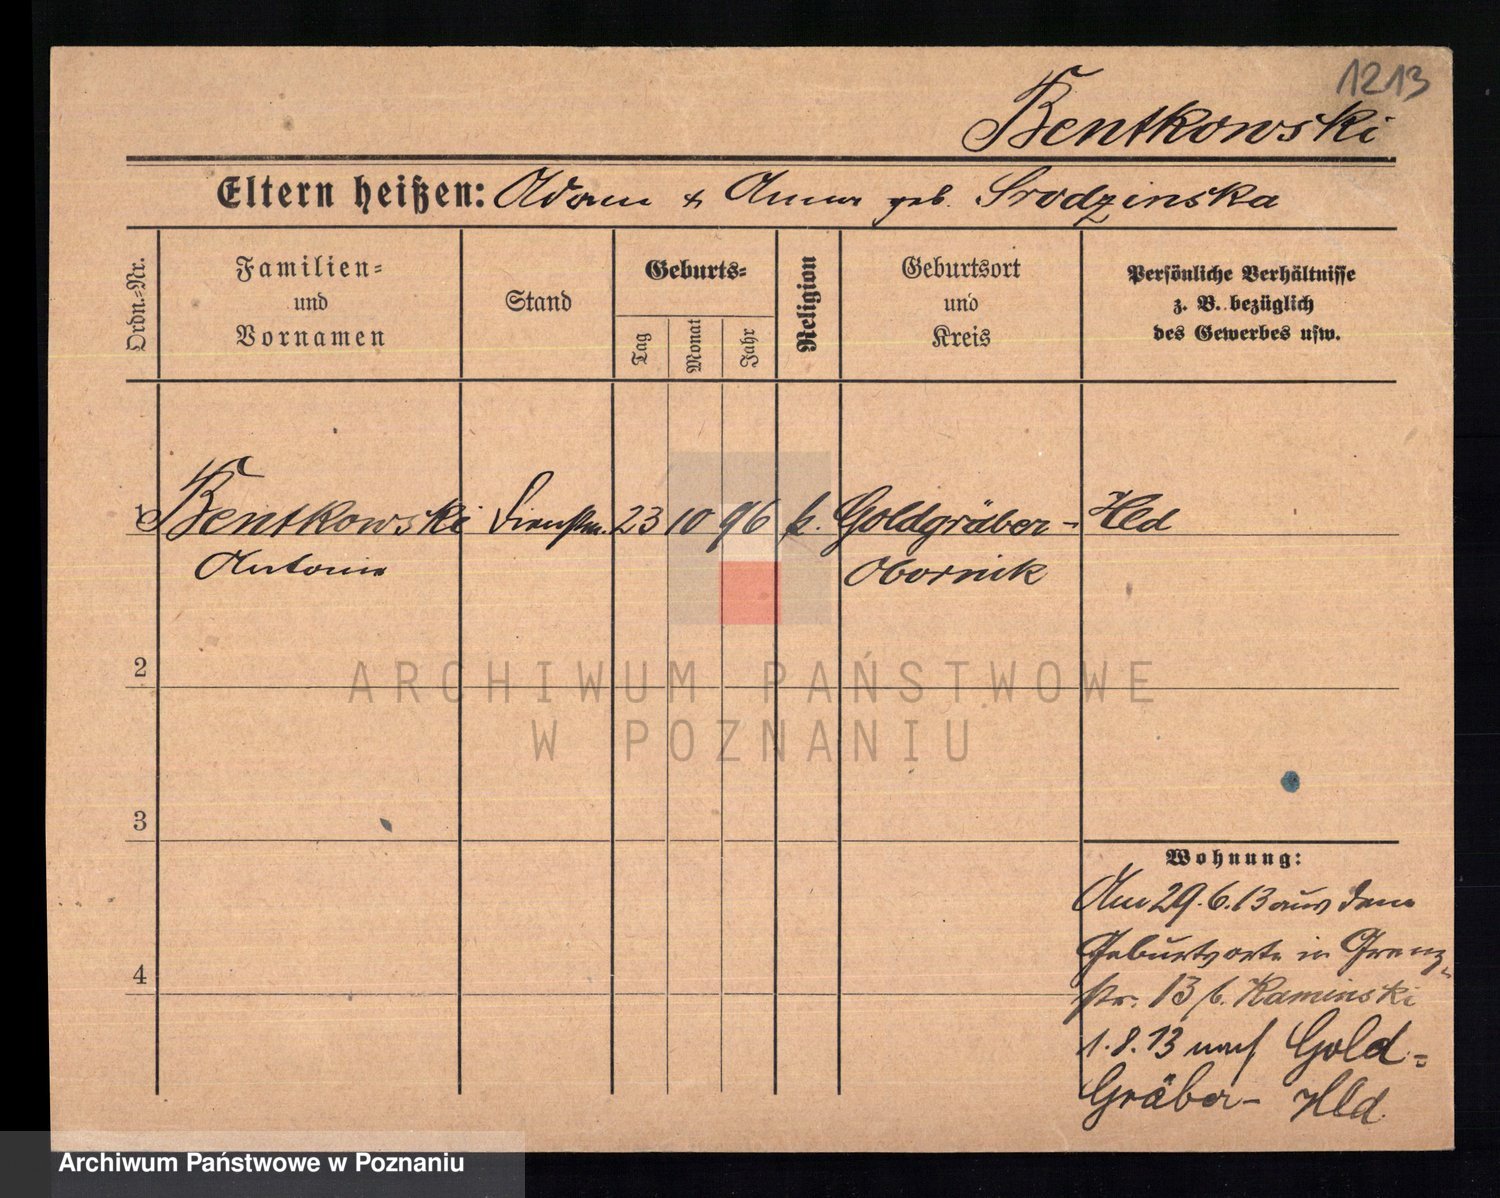 1213
Bentkowski
Eltern heißen: Adam & Anna geb. Srodzinska
Ordn.=Nr.
Familien=
und
Vornamen
Stand
Geburts=
Tag
Monat
Jahr
Religion
Geburtsort
und
Kreis
Persönliche Verhältnisse
z. B. bezüglich
des Gewerbes usw.
1 Bentkowski Dienstm. 23 10 96 k. Goldgräber- Hld
Antonie Obornik
2
3
4
Wohnung:
Am 29.6.13 aus dem
Geburtsorte in Grenz-
str. 13 b. Kaminski
1.8.13 nach Gold-
Gräber- Hld
ARCHIWUM PAŃSTWOWE
W POZNANIU
Archiwum Państwowe w Poznaniu